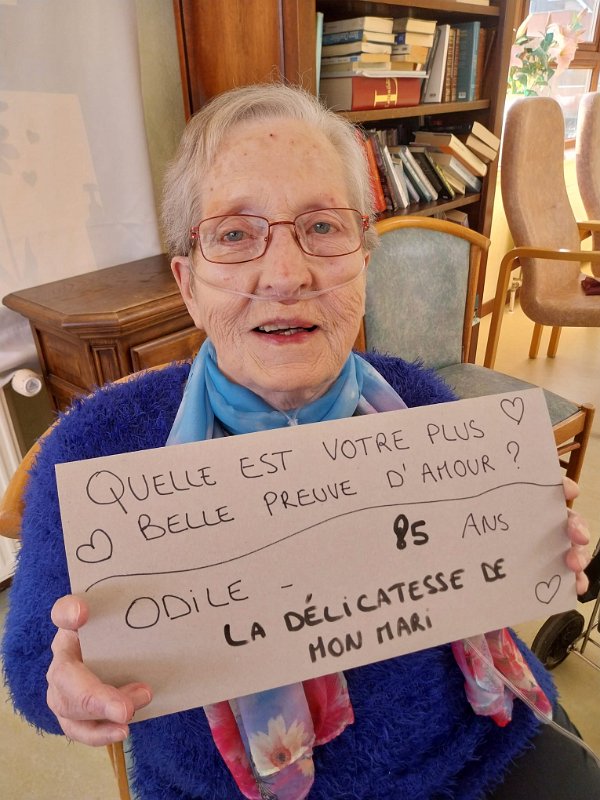 QUELLE EST VOTRE PLUS
BELLE PREUVE D'AMOUR ?
85 ANS
ODILE -
LA DÉLICATESSE DE
MON MARI